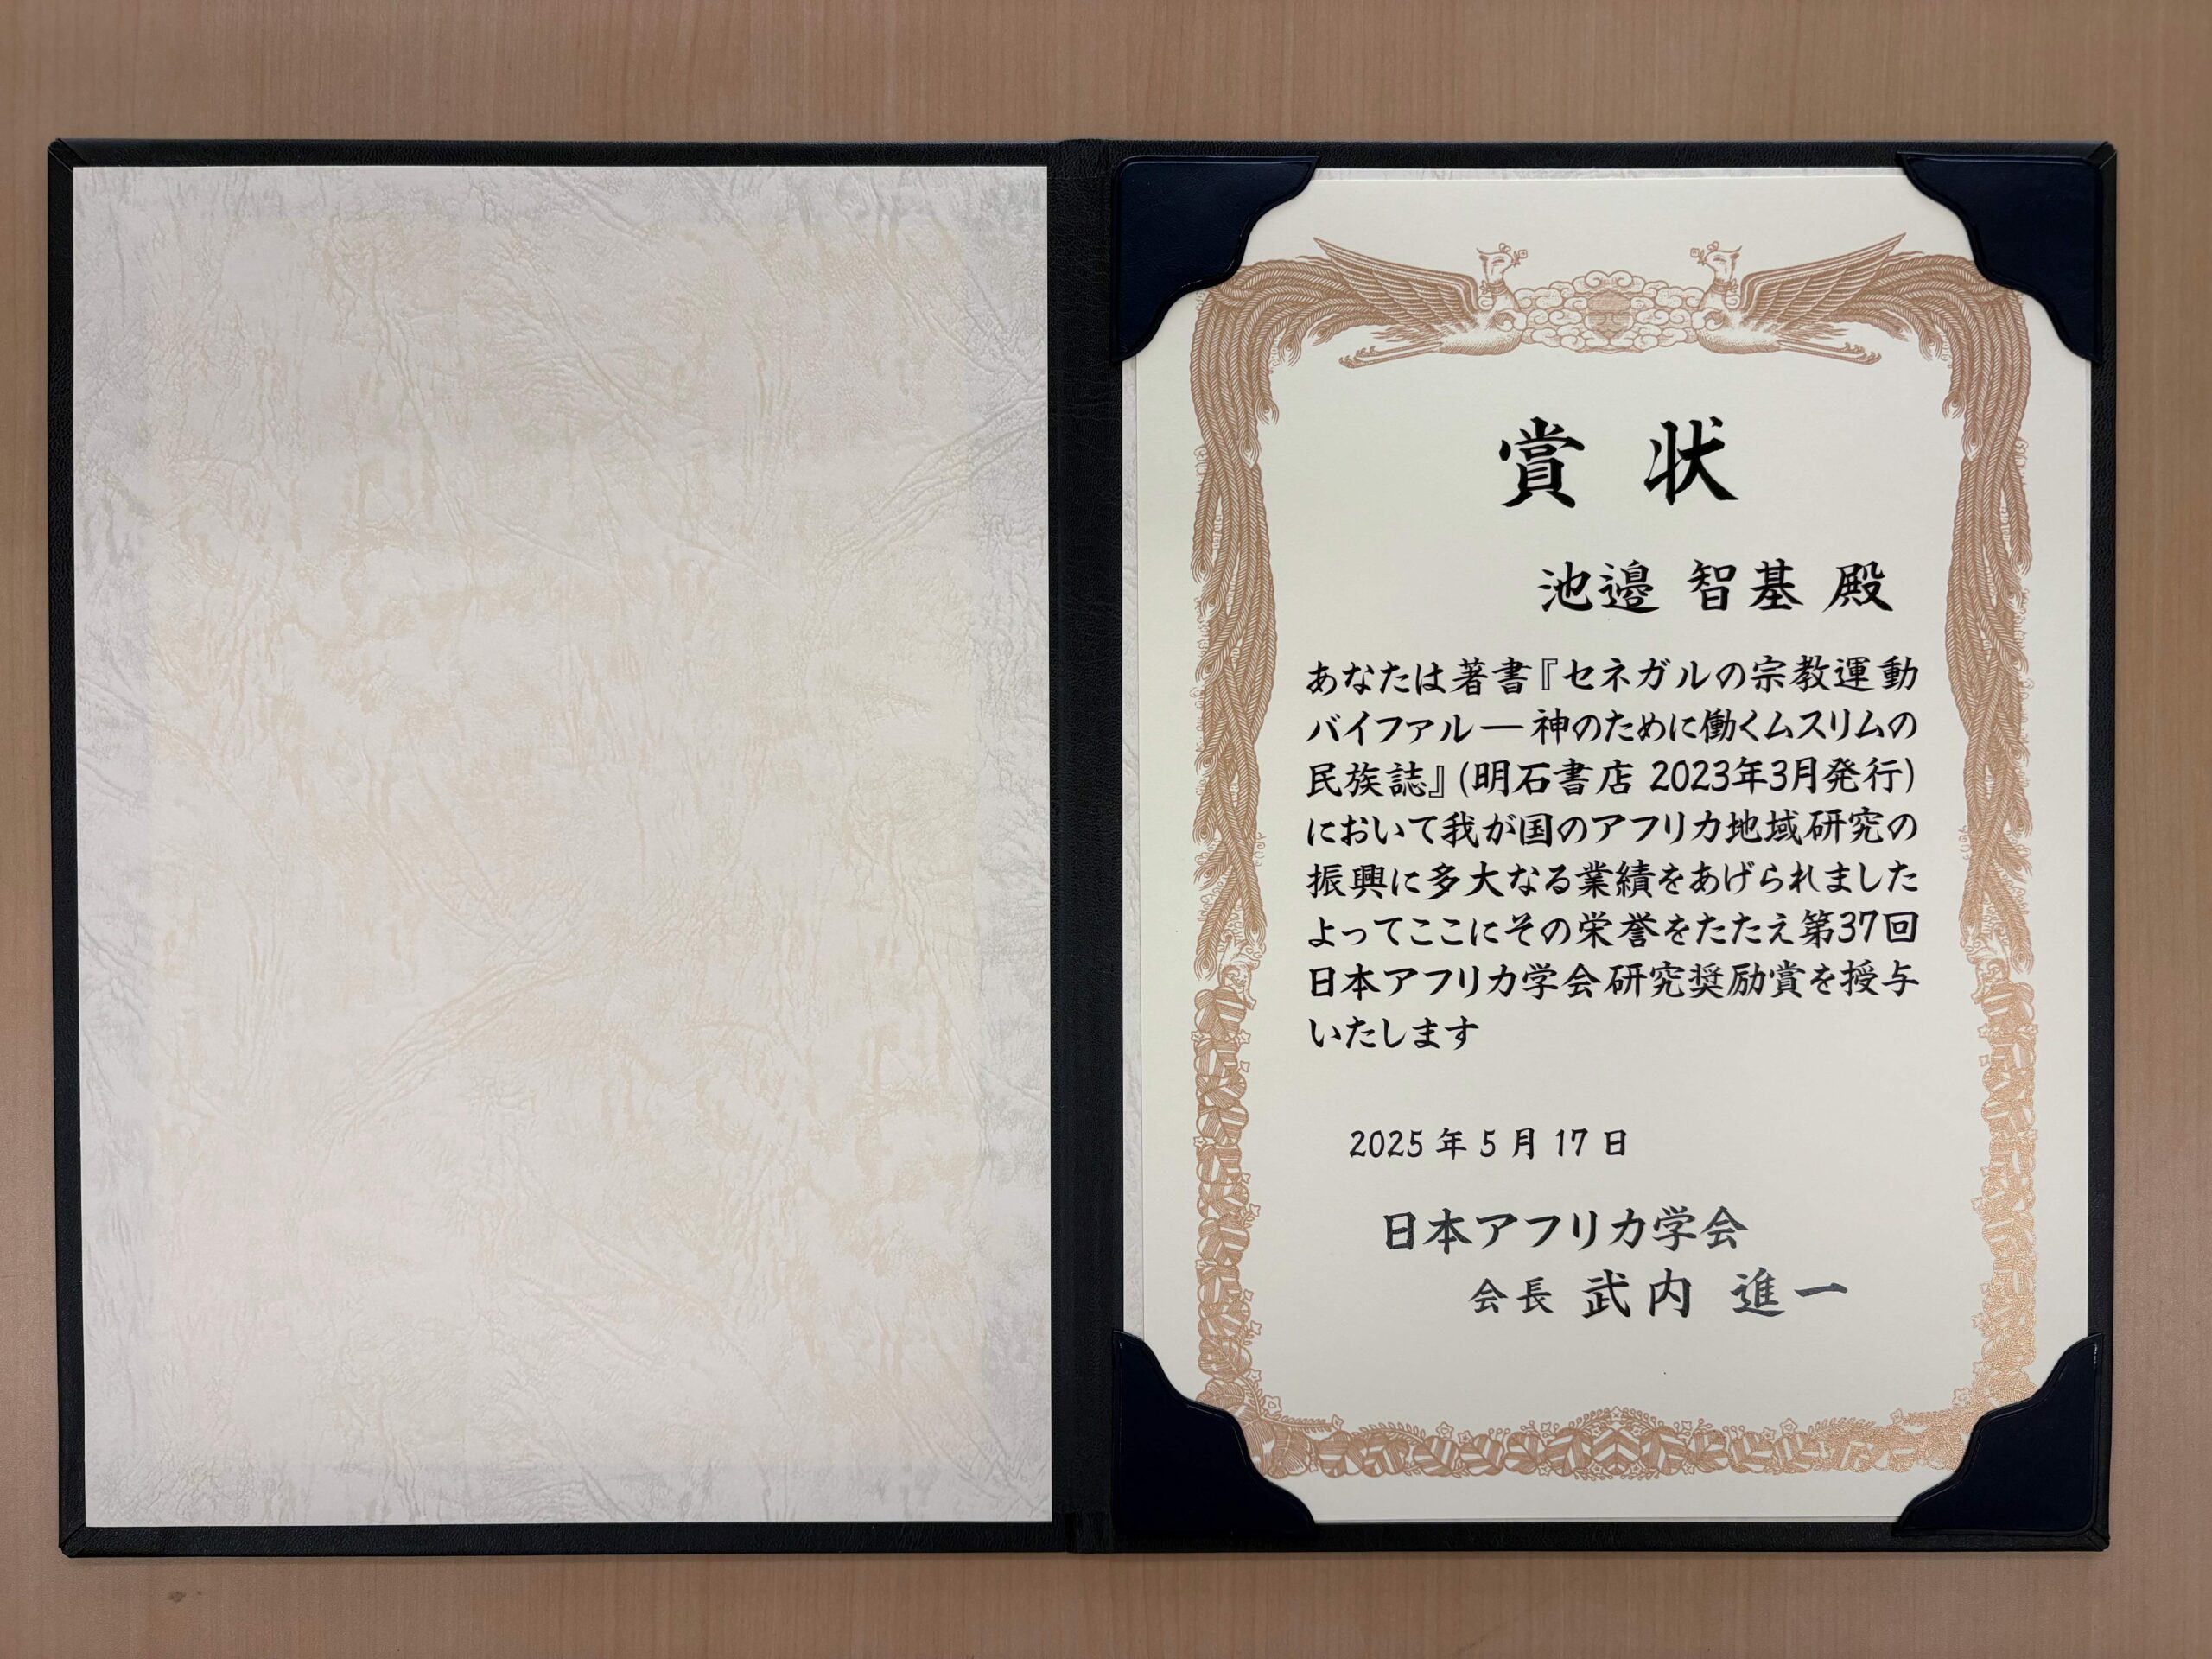 賞状
池邉 智基 殿
あなたは著書『セネガルの宗教運動
バイファル ― 神のために働くムスリムの
民族誌』(明石書店 2023年3月発行)
において我が国のアフリカ地域研究の
振興に多大なる業績をあげられました
よってここにその栄誉をたたえ第37回
日本アフリカ学会研究奨励賞を授与
いたします
2025年5月17日
日本アフリカ学会
会長 武内 進一